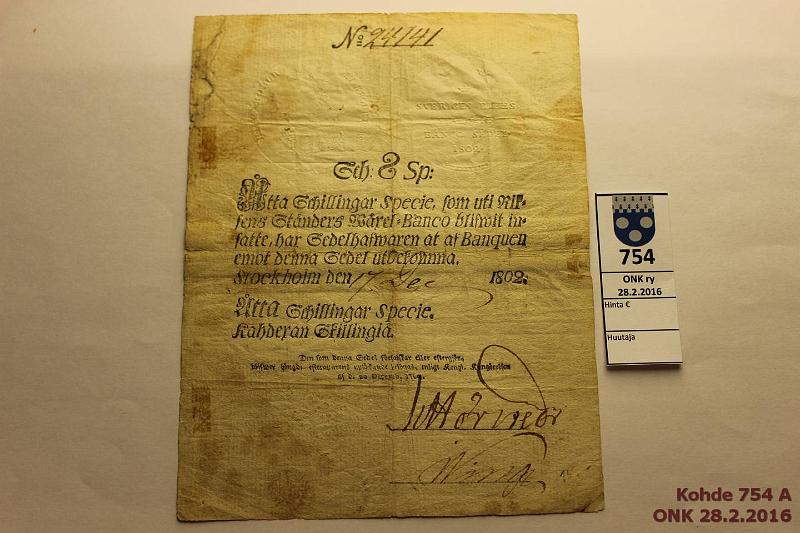 No 24741
SVERIGES RIKES
BANCO SEDEL
1802.
Sch: 8 Sp:
Åtta Schillingar Specie, som uti Rik-
sens Ständers Wäxel-Banco blifwit in-
satte, har Sedelhafwaren at af Banquen
emot denna Sedel utbekomma,
Stockholm den 17. Dec 1802.
Åtta Schillingar Specie.
Kahdexan Skillingiä.
Den som denna Sedel förfalskar eller eftergör,
enligt Kongl. Kungörelsen
af d.
754
ONK ry
28.2.2016
Hinta €
Huutaja
Kohde 754 A
ONK 28.2.2016